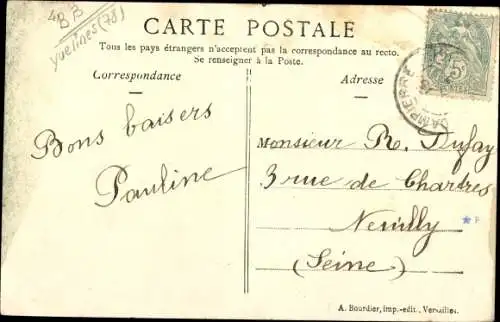 BB
Yvelines (78)
CARTE POSTALE
Tous les pays étrangers n'acceptent pas la correspondance au recto.
Se renseigner à la Poste.
Correspondance
Adresse
Bons baisers
Pauline
Monsieur R. Dufay
3 rue de Chartres
Neuilly
(Seine)
A. Bourdier, imp.-edit., Versailles.